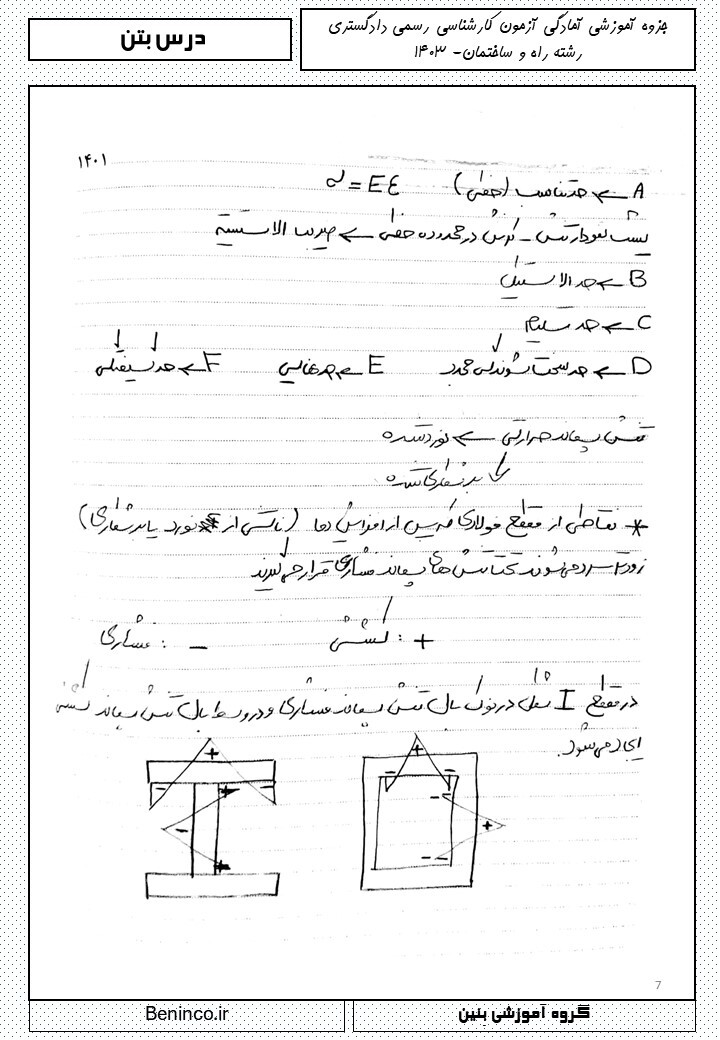 جزوه آموزشی آمادگی آزمون کارشناسی رسمی دادگستری
رشته راه و ساختمان- ۱۴۰۳
درس بتن
۱۴۰۱
A ← حد تناسب (خطی) σ = Eε
شیب نمودار تنش - کرنش در محدوده خطی ← ضریب الاستیسیته
B ← حد الاستیک
C ← حد تسلیم
D ← حد سخت شوندگی مجدد E ← حد نهایی F ← حد گسیختگی
تنش پسماند حرارتی ← نورد شده
برشکاری شده
* نقاطی از مقطع فولادی که پس از افزایش دما (ناشی از نورد یا برشکاری)
زودتر سرد می شوند تحت تنش های پسماند فشاری قرار می گیرند
+ : کششی - : فشاری
در مقطع I شکل در نوک بال تنش پسماند فشاری و در وسط بال تنش پسماند کششی
ایجاد می شود.
+ +
- - - -
+ - -
- +
+ - -
7
گروه آموزشی بنین
Beninco.ir